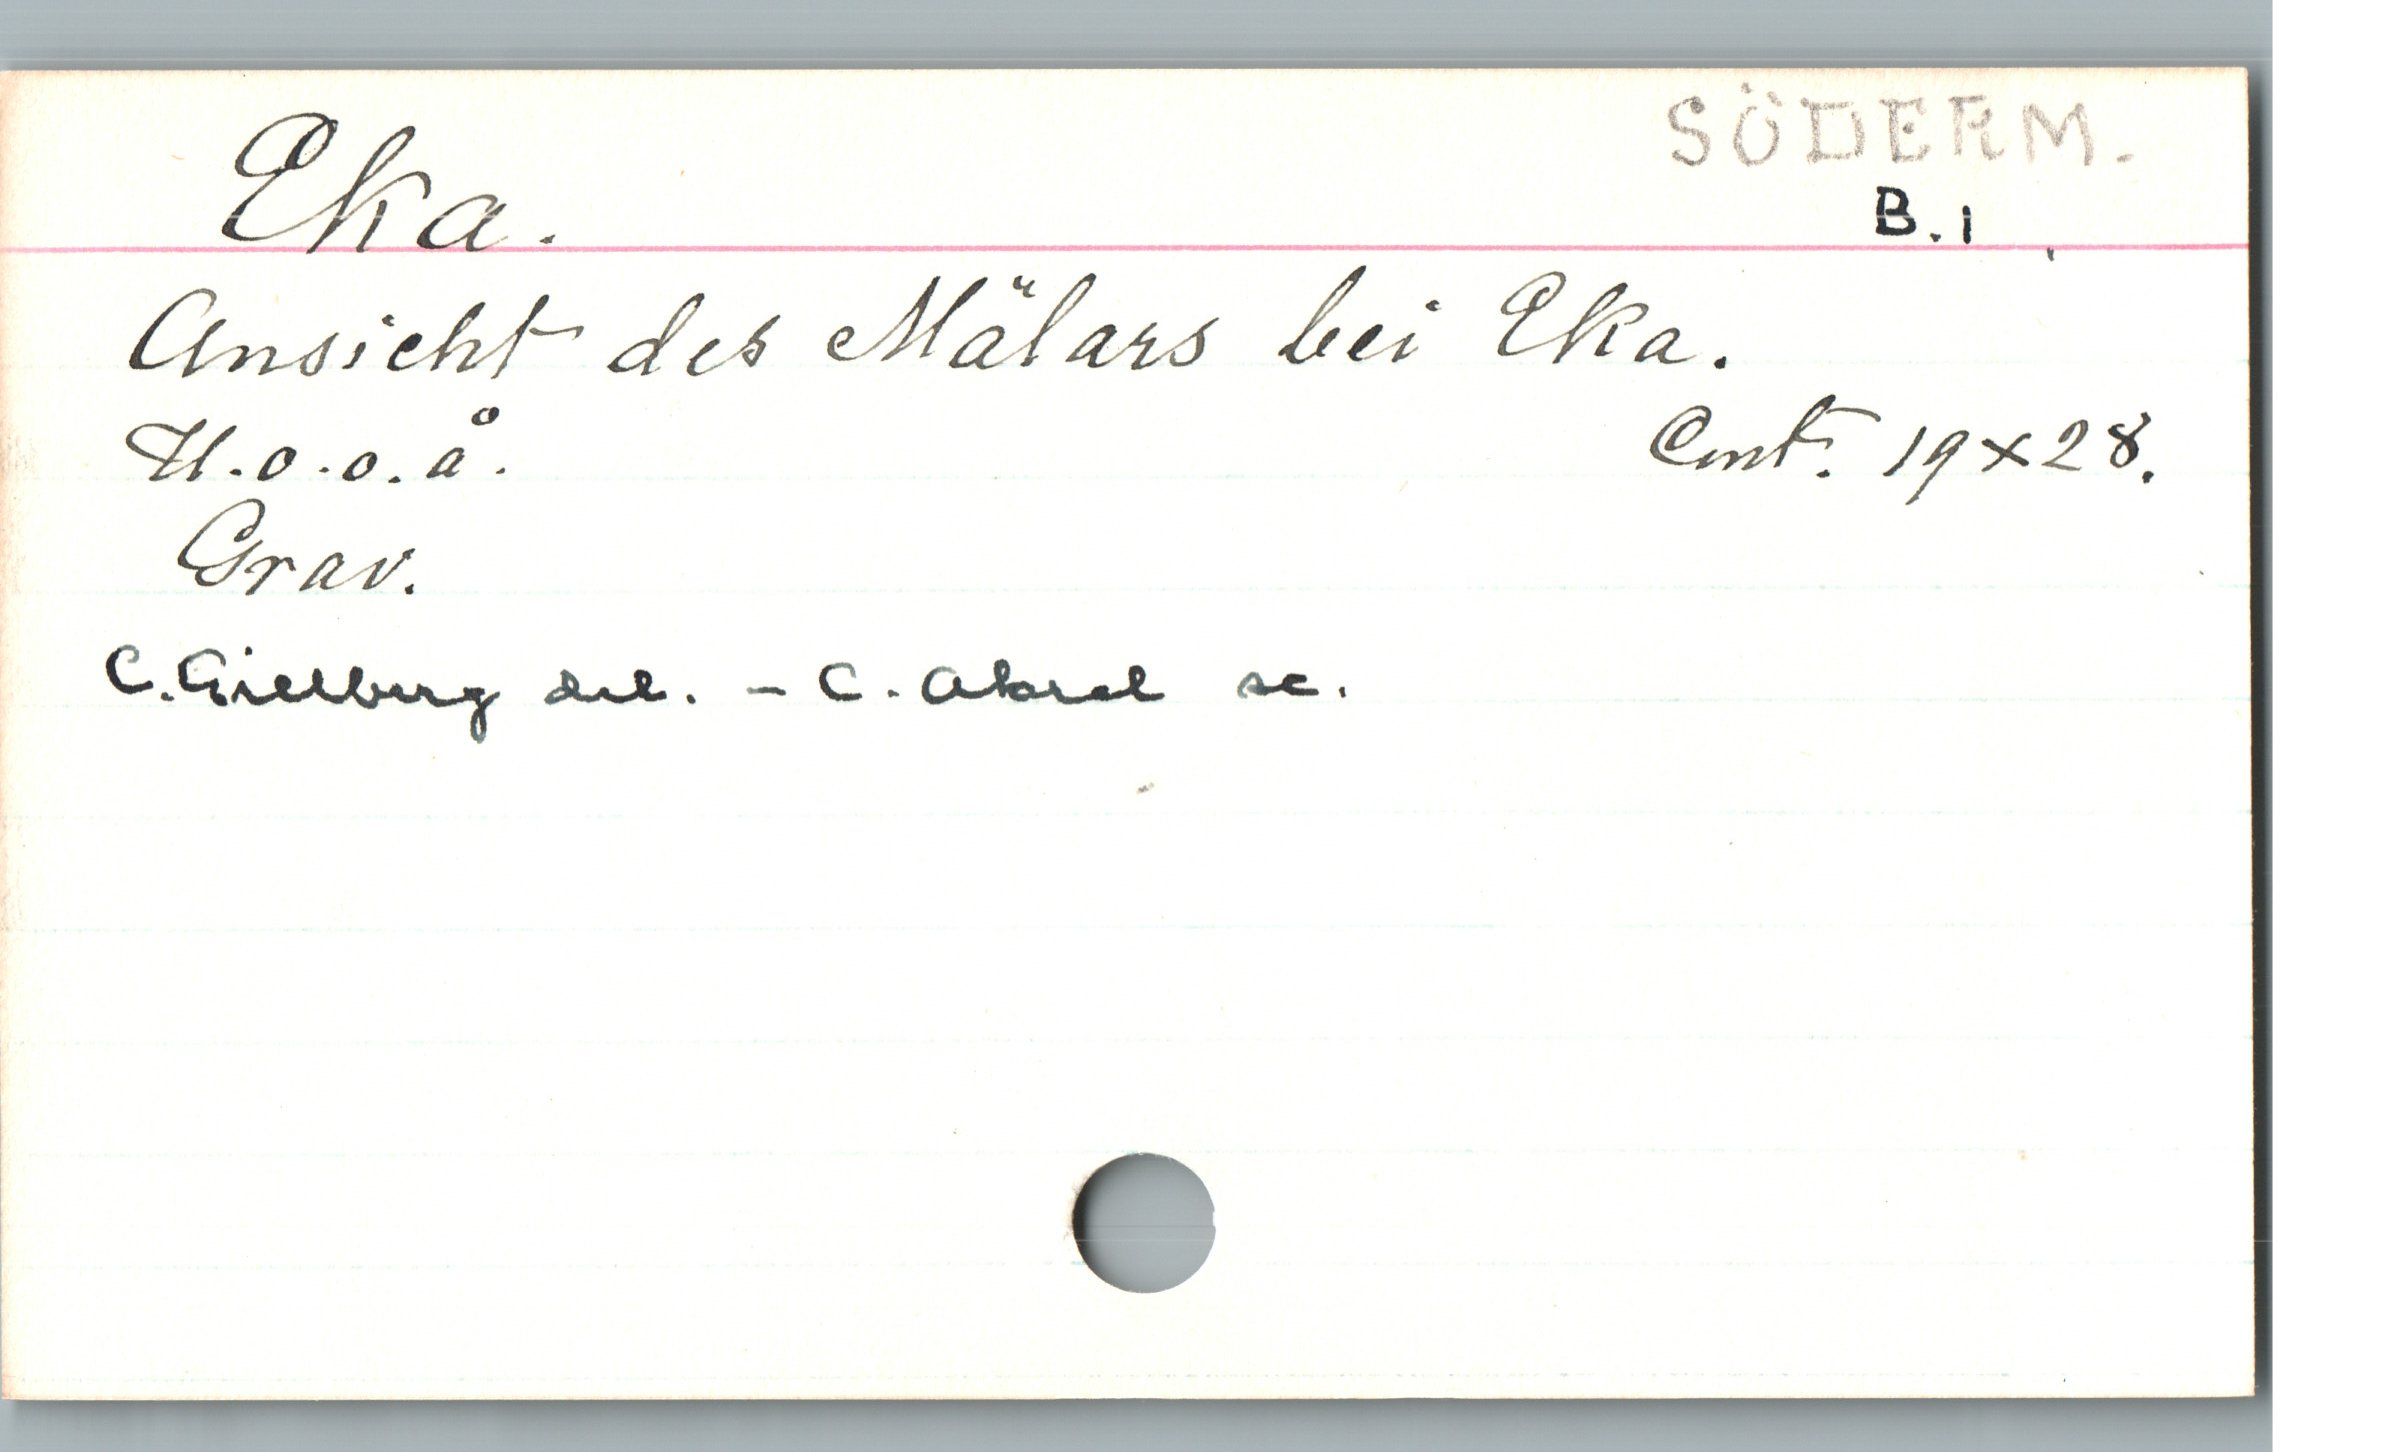 SÖDERM.
Eka.
B. 1
Ansicht des Mälars bei Eka.
U. o. o. å.
Cent. 19 x 28.
Grav.
C. Gillberg del. - C. Akrel sc.